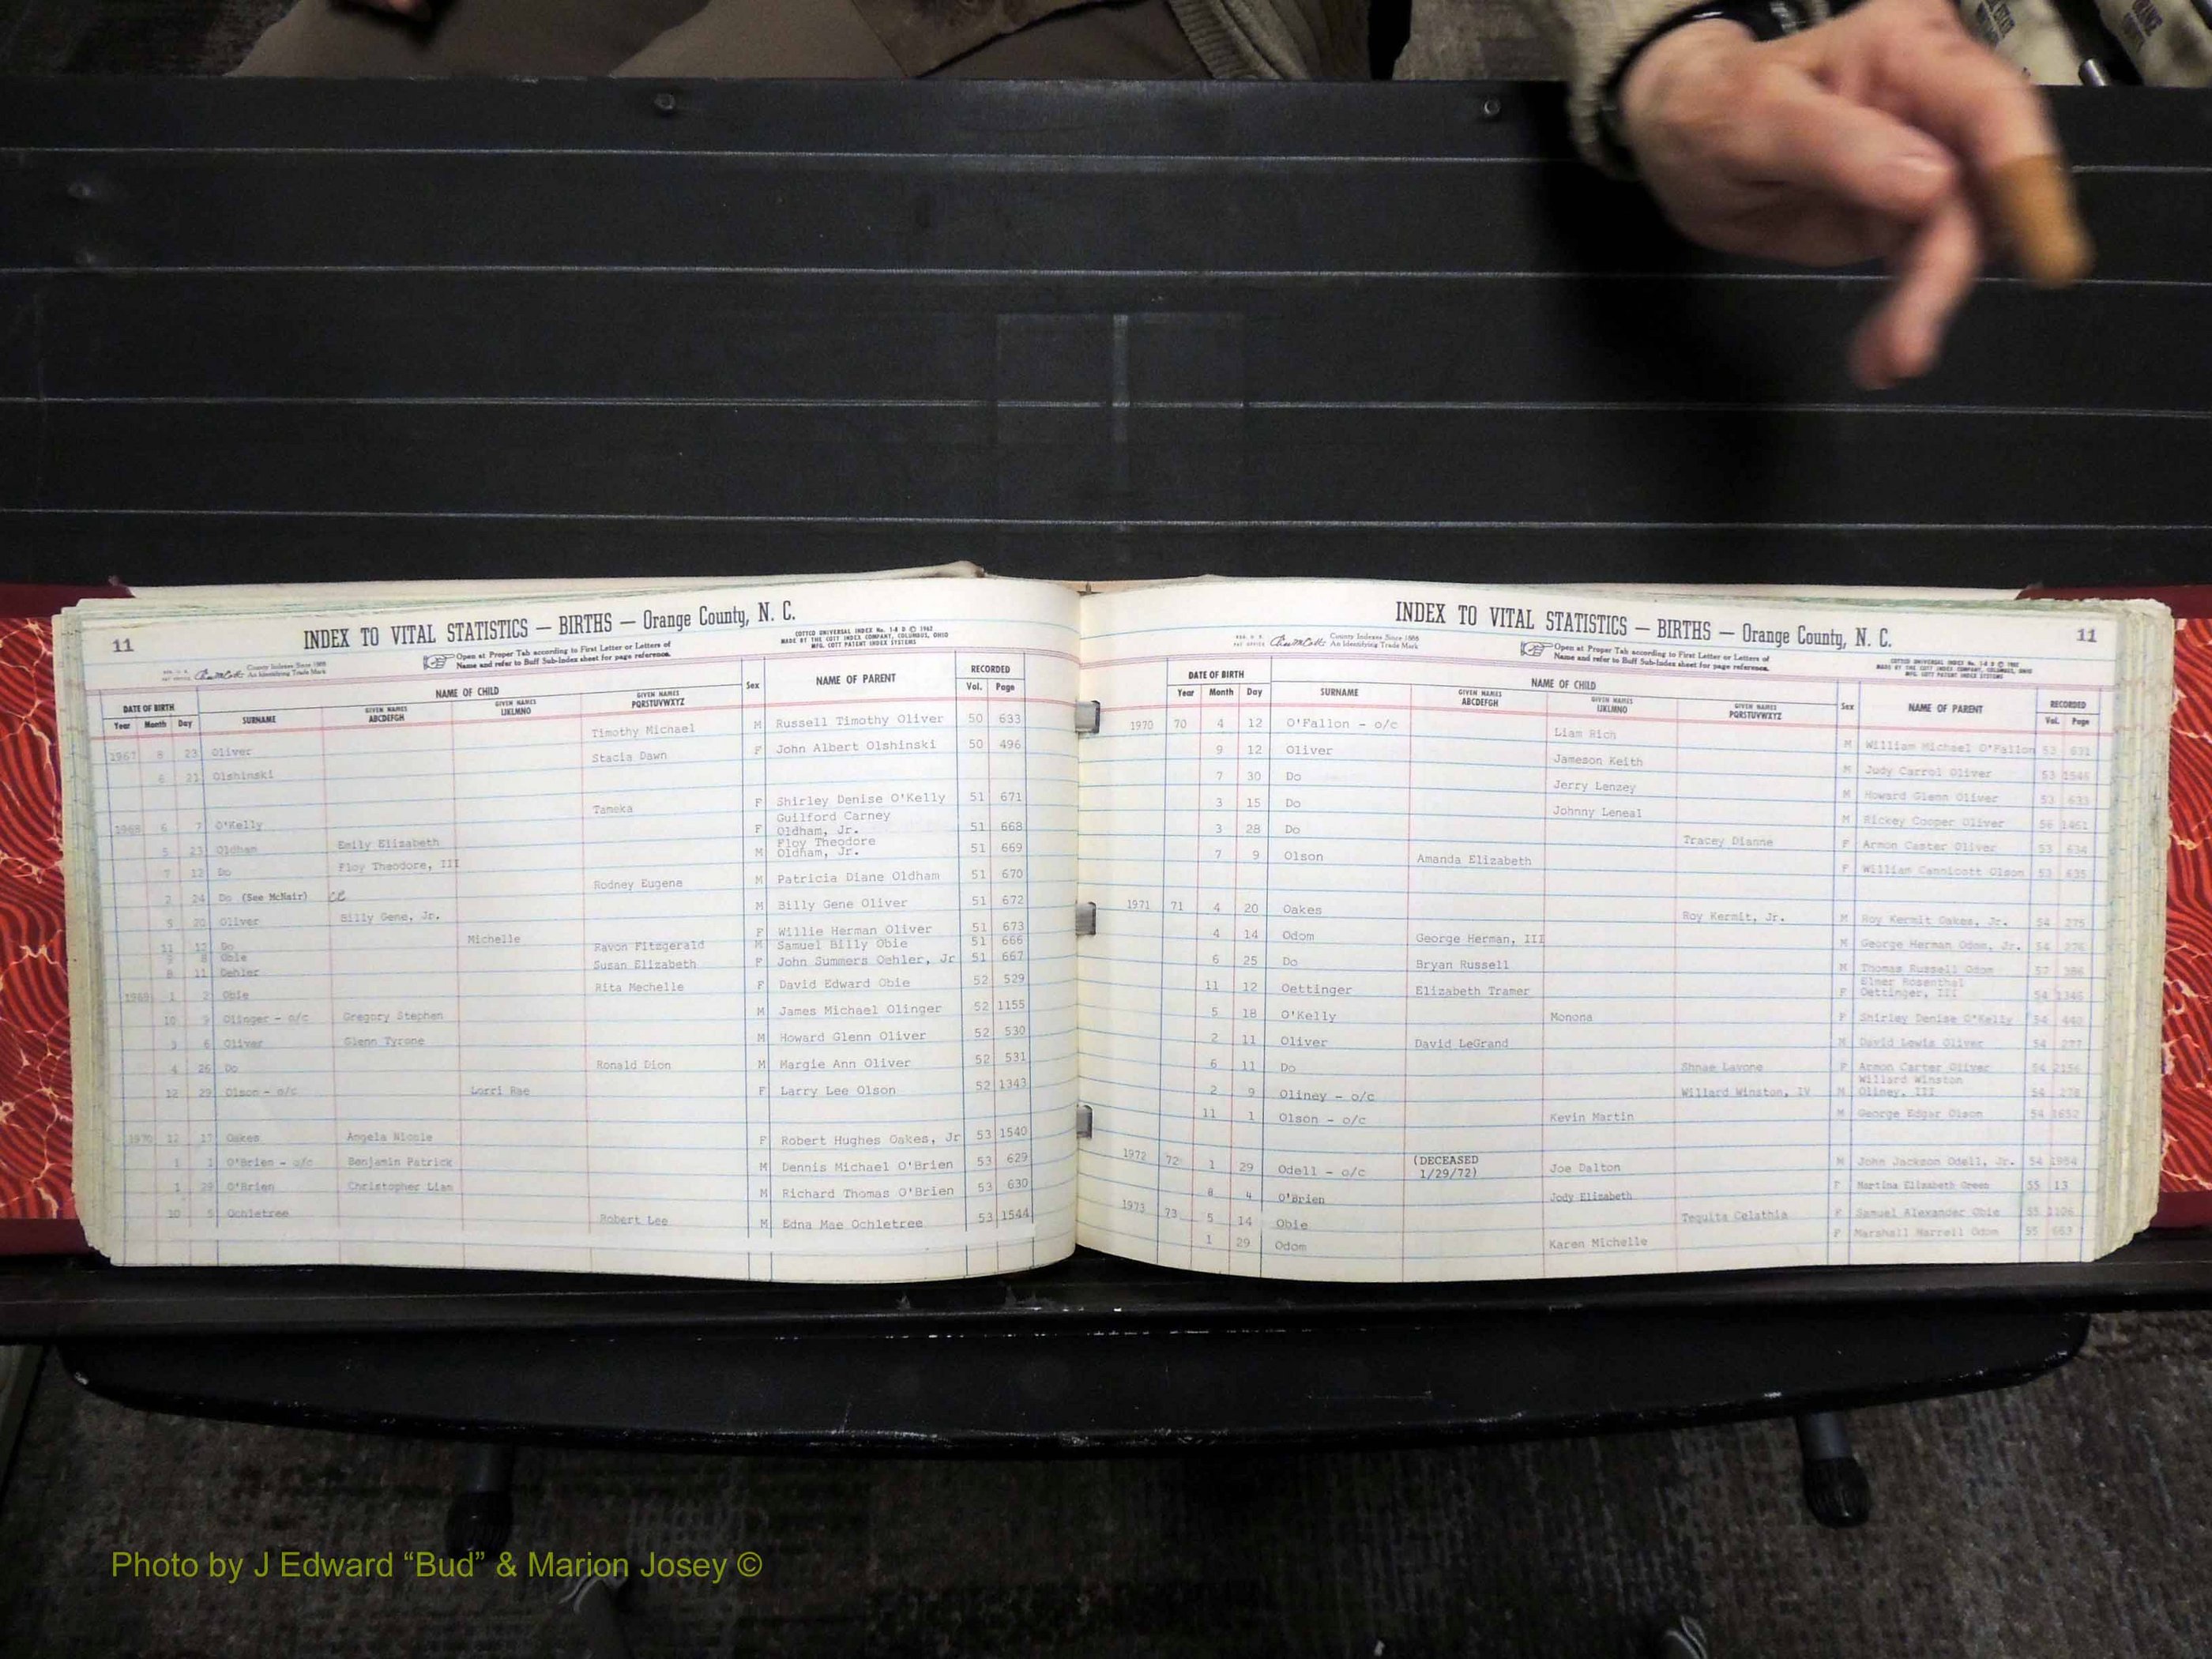 11
INDEX TO VITAL STATISTICS — BIRTHS — Orange County, N. C.
COTTCO UNIVERSAL INDEX No. 1-8 D © 1962
MADE BY THE COTT INDEX COMPANY, COLUMBUS, OHIO
MFG. COTT PATENT INDEX SYSTEMS
County Indexes Since 1888
An Identifying Trade Mark
Open at Proper Tab according to First Letter or Letters of
Name and refer to Buff Sub-Index sheet for page reference.
DATE OF BIRTH NAME OF CHILD Sex NAME OF PARENT RECORDED
Year Month Day SURNAME GIVEN NAMES ABCDEFGH GIVEN NAMES IJKLMNO GIVEN NAMES PQRSTUVWXYZ Vol. Page
1967 8 23 Oliver Timothy Michael M Russell Timothy Oliver 50 633
6 21 Olshinski Stacia Dawn F John Albert Olshinski 50 496
1968 6 7 O'Kelly Tameka F Shirley Denise O'Kelly 51 671
5 23 Oldham Emily Elizabeth F Guilford Carney Oldham, Jr. 51 668
7 12 Do Floy Theodore, III M Floy Theodore Oldham, Jr. 51 669
2 24 Do (See McNair) Rodney Eugene M Patricia Diane Oldham 51 670
5 20 Oliver Billy Gene, Jr. M Billy Gene Oliver 51 672
11 12 Do Michelle F Willie Herman Oliver 51 673
9 8 Obie Ravon Fitzgerald M Samuel Billy Obie 51 666
8 11 Oehler Susan Elizabeth F John Summers Oehler, Jr 51 667
1969 1 2 Obie Rita Mechelle F David Edward Obie 52 529
10 9 Olinger - o/c Gregory Stephen M James Michael Olinger 52 1155
3 6 Oliver Glenn Tyrone M Howard Glenn Oliver 52 530
4 26 Do Ronald Dion M Margie Ann Oliver 52 531
12 29 Olson - o/c Lorri Rae F Larry Lee Olson 52 1343
1970 12 17 Oakes Angela Nicole F Robert Hughes Oakes, Jr 53 1540
1 1 O'Brien - o/c Benjamin Patrick M Dennis Michael O'Brien 53 629
1 29 O'Brien Christopher Liam M Richard Thomas O'Brien 53 630
10 5 Ochletree Robert Lee M Edna Mae Ochletree 53 1544
INDEX TO VITAL STATISTICS — BIRTHS — Orange County, N. C.
11
County Indexes Since 1888
An Identifying Trade Mark
Open at Proper Tab according to First Letter or Letters of
Name and refer to Buff Sub-Index sheet for page reference.
COTTCO UNIVERSAL INDEX No. 1-8 D © 1962
MADE BY THE COTT INDEX COMPANY, COLUMBUS, OHIO
MFG. COTT PATENT INDEX SYSTEMS
DATE OF BIRTH NAME OF CHILD Sex NAME OF PARENT RECORDED
Year Month Day SURNAME GIVEN NAMES ABCDEFGH GIVEN NAMES IJKLMNO GIVEN NAMES PQRSTUVWXYZ Vol. Page
1970 70 4 12 O'Fallon - o/c Liam Rich M William Michael O'Fallon 53 631
9 12 Oliver Jameson Keith M Judy Carrol Oliver 53 1546
7 30 Do Jerry Lenzey M Howard Glenn Oliver 53 633
3 15 Do Johnny Leneal M Rickey Cooper Oliver 56 1461
3 28 Do Tracey Dianne F Armon Caster Oliver 53 634
7 9 Olson Amanda Elizabeth F William Cannicott Olson 53 635
1971 71 4 20 Oakes Roy Kermit, Jr. M Roy Kermit Oakes, Jr. 54 275
4 14 Odom George Herman, III M George Herman Odom, Jr. 54 276
6 25 Do Bryan Russell M Thomas Russell Odom 57 386
11 12 Oettinger Elizabeth Tramer F Elmer Rosenthal Oettinger, III 54 1346
5 18 O'Kelly Monona F Shirley Denise O'Kelly 54 442
2 11 Oliver David LeGrand M David Lewis Oliver 54 277
6 11 Do Shnae Lavone F Armon Carter Oliver 54 2156
2 9 Oliney - o/c Willard Winston, IV M Willard Winston Oliney, III 54 278
11 1 Olson - o/c Kevin Martin M George Edgar Olson 54 1652
1972 72 1 29 Odell - o/c (DECEASED 1/29/72) Joe Dalton M John Jackson Odell, Jr. 54 1984
8 4 O'Brien Jody Elizabeth F Martina Elizabeth Green 55 13
1973 73 5 14 Obie Tequita Celathia F Samuel Alexander Obie 55 1106
1 29 Odom Karen Michelle F Marshall Harrell Odom 55 653
Photo by J Edward “Bud” & Marion Josey ©